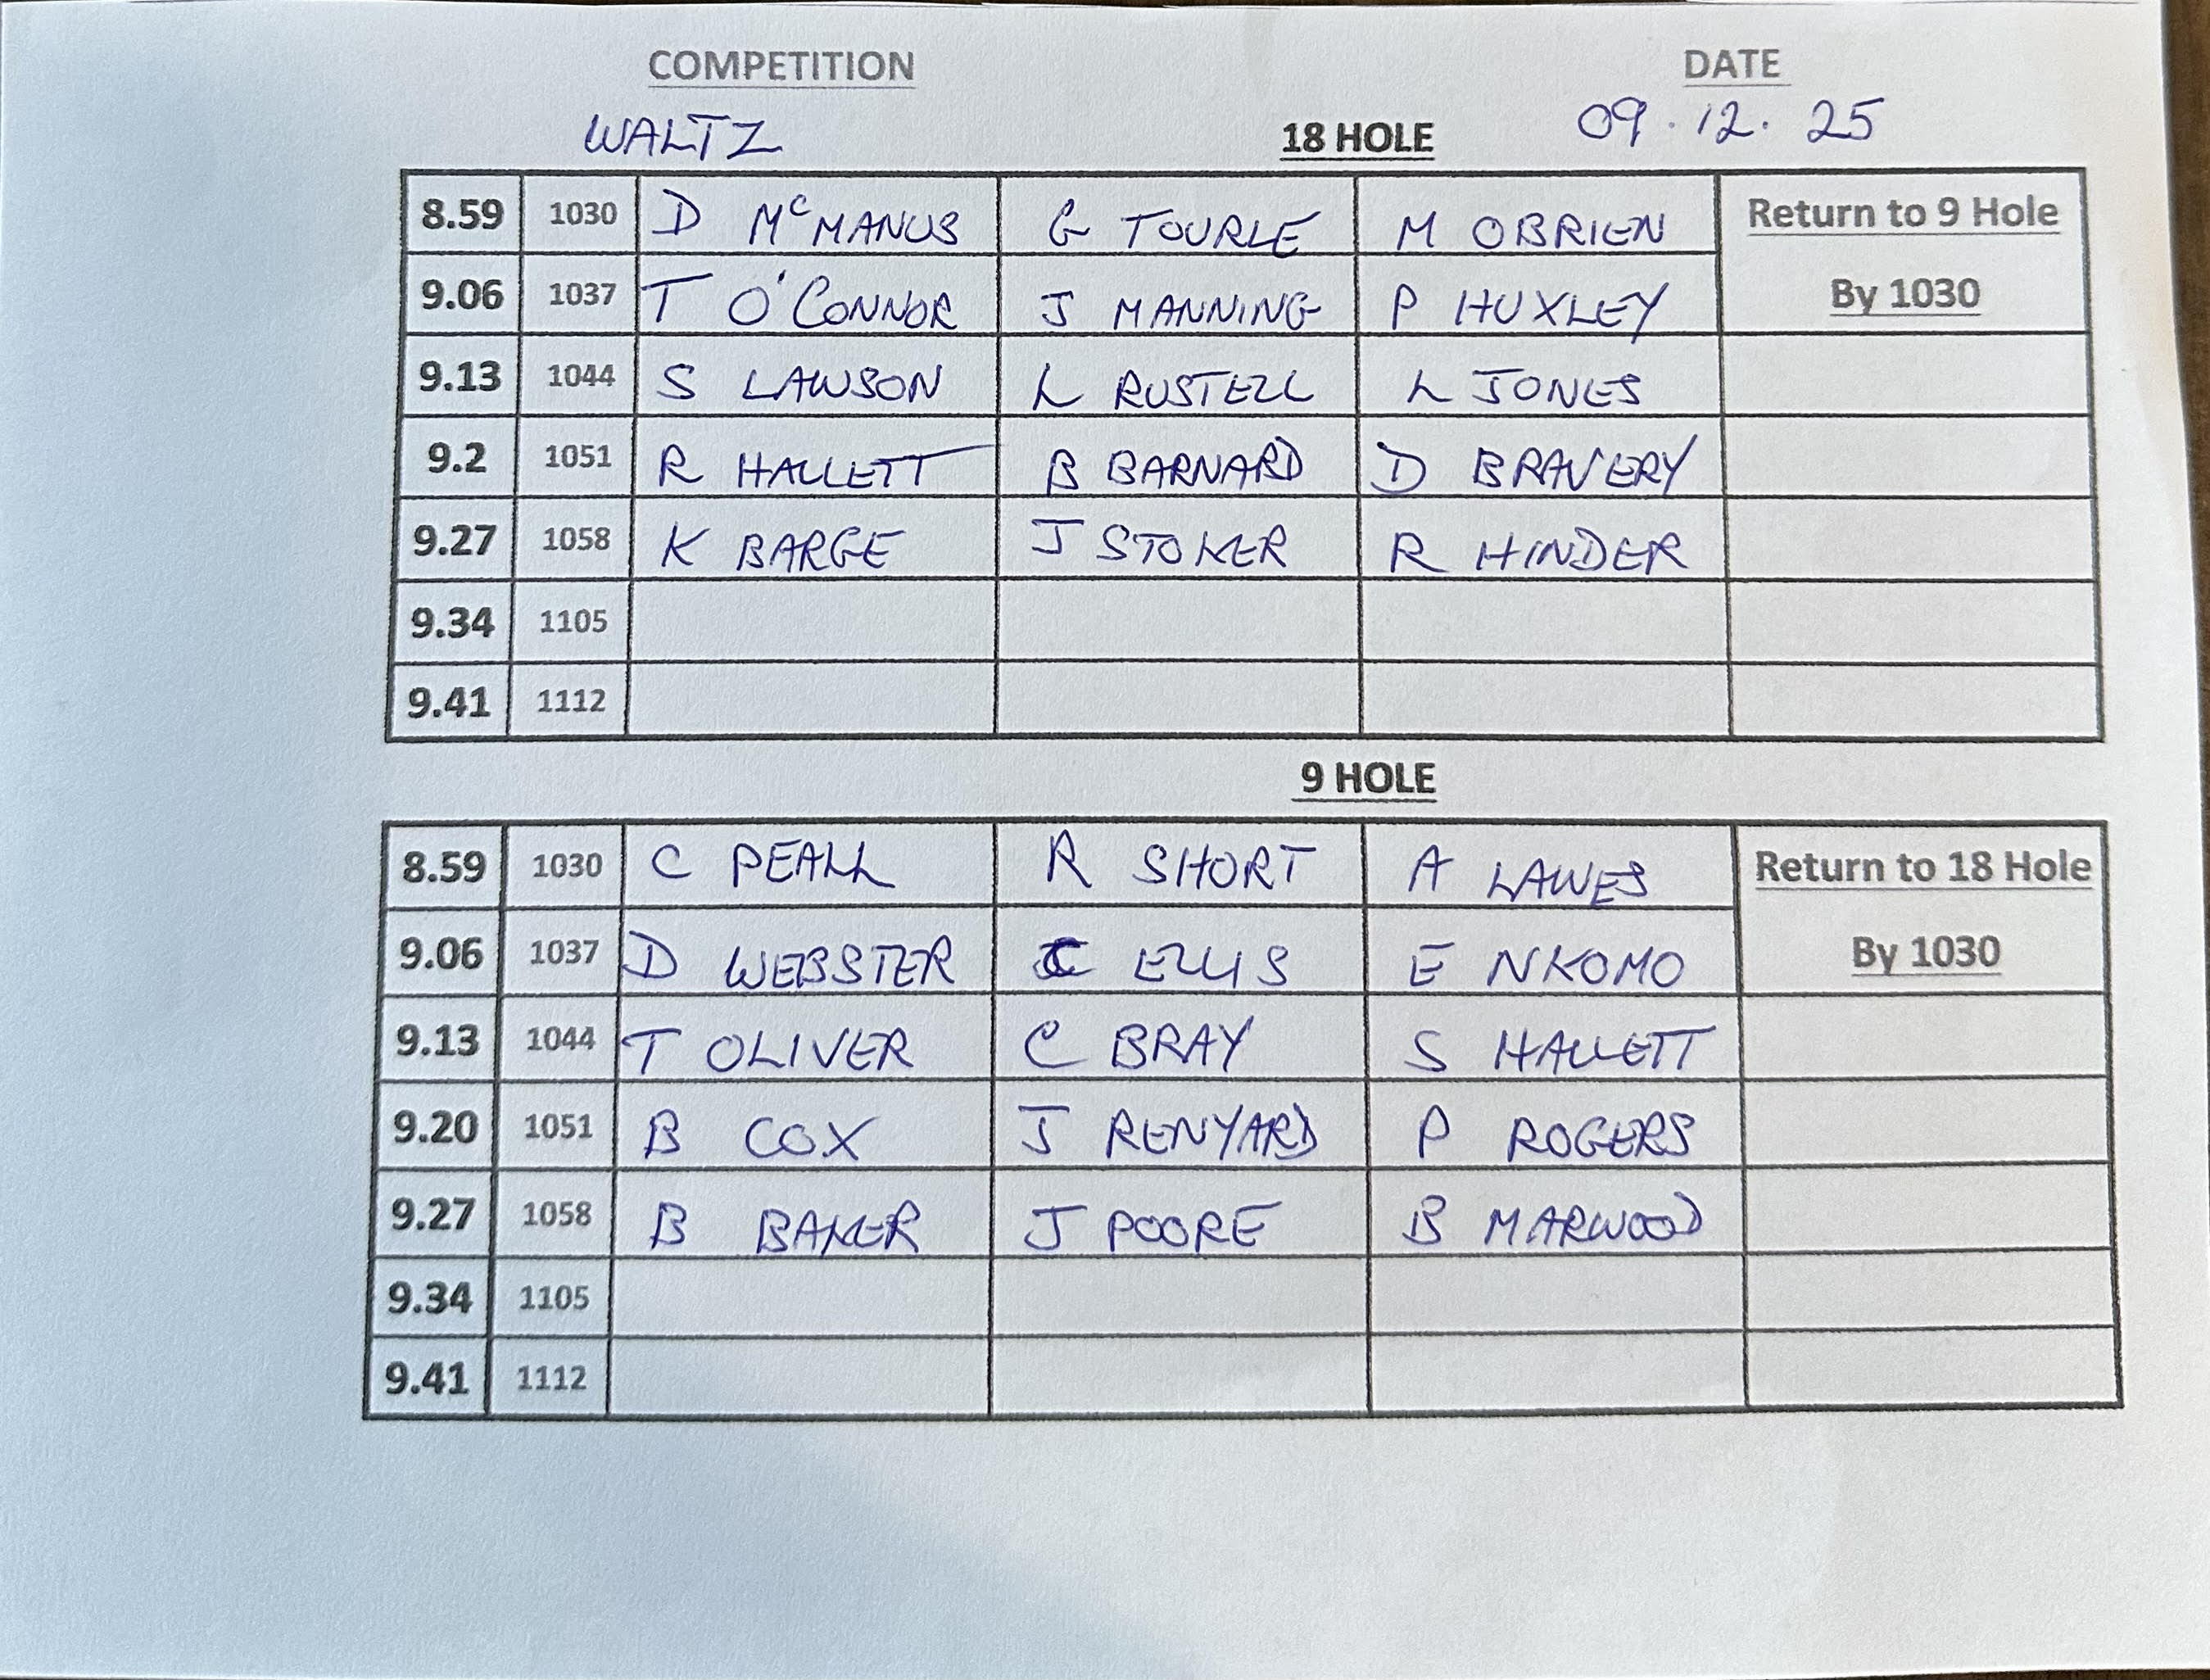 COMPETITION DATE
WALTZ 18 HOLE 09.12.25
8.59 1030 D McMANUS G TOURLE M OBRIEN Return to 9 Hole
9.06 1037 T O'CONNOR J MANNING P HUXLEY By 1030
9.13 1044 S LAWSON L RUSTELL L JONES
9.2 1051 R HALLETT B BARNARD D BRAVERY
9.27 1058 K BARGE J STOKER R HINDER
9.34 1105
9.41 1112
9 HOLE
8.59 1030 C PEALL R SHORT A LAWES Return to 18 Hole
9.06 1037 D WEBSTER C ELLIS E NKOMO By 1030
9.13 1044 T OLIVER C BRAY S HALLETT
9.20 1051 B COX J RENYARD P ROGERS
9.27 1058 B BAKER J POORE B MARWOOD
9.34 1105
9.41 1112